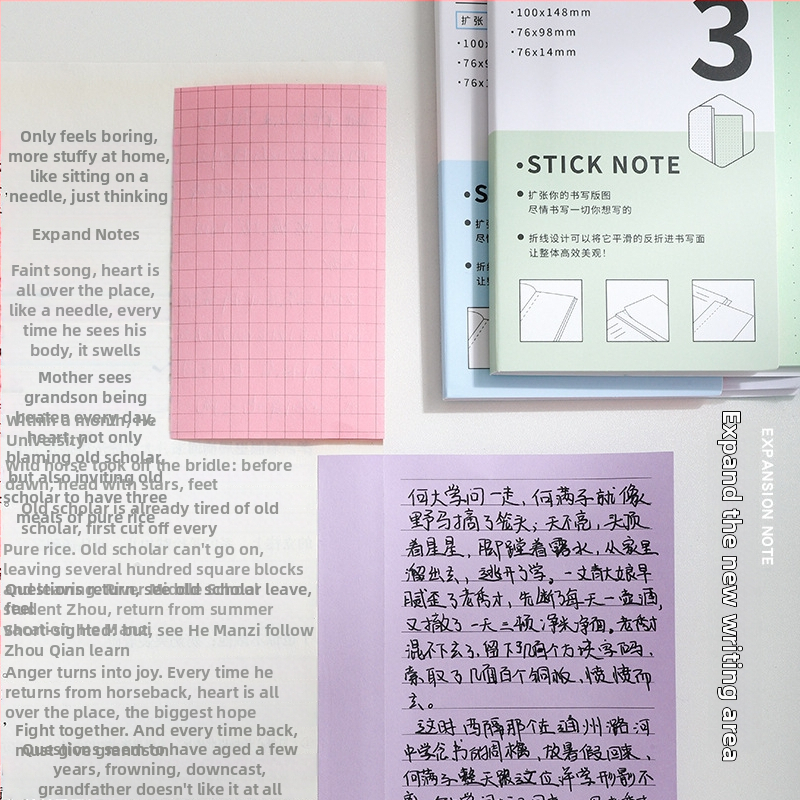 Only feels boring,
more stuffy at home,
like sitting on a
needle, just thinking
Expand Notes
Faint song, heart is
all over the place,
like a needle, every
time he sees his
body, it swells
Mother sees
grandson being
beaten every day,
heart, not only
blaming old scholar,
but also inviting old
scholar to have three
meals of pure rice
Within a month, He
University
Wild horse took off the bridle: before
dawn, head with stars, feet
Old scholar is already tired of old
scholar, first cut off every
Pure rice. Old scholar can't go on,
leaving several hundred square blocks
Questions return, see old scholar leave,
feel
student Zhou, return from summer
Short-sighted! but, see He Manzi follow
Zhou Qian learn
Anger turns into joy. Every time he
returns from horseback, heart is all
over the place, the biggest hope
Fight together. And every time back,
must give grandson
Questions seem to have aged a few
years, frowning, downcast,
grandfather doesn't like it at all
扩张
·100x
·76x9
·76x1
3
·100x148mm
·76x98mm
·76x14mm
·STICK NOTE
扩张你的书写版图
尽情书写一切你想写的
折线设计可以将它平滑的反折进书写面
让整体高效美观!
何大学问一走，何满子就像
野马摘了笼头；天不亮，头顶
着星星，脚蹚着露水，从家里
溜出去，逃开了学。一丈青大娘早
腻歪了老秀才，先断了每天一壶酒，
又撤了一天三顿净米净面。老秀才
混不下去了，留下几百个方块字码，
索取了几百个铜板，愤愤而
去。
这时，西隔那个在通州潞河
中学念书的周檎，放暑假回来，
何满子整天跟这位洋学形影不
Expand the new writing area
EXPANSION NOTE